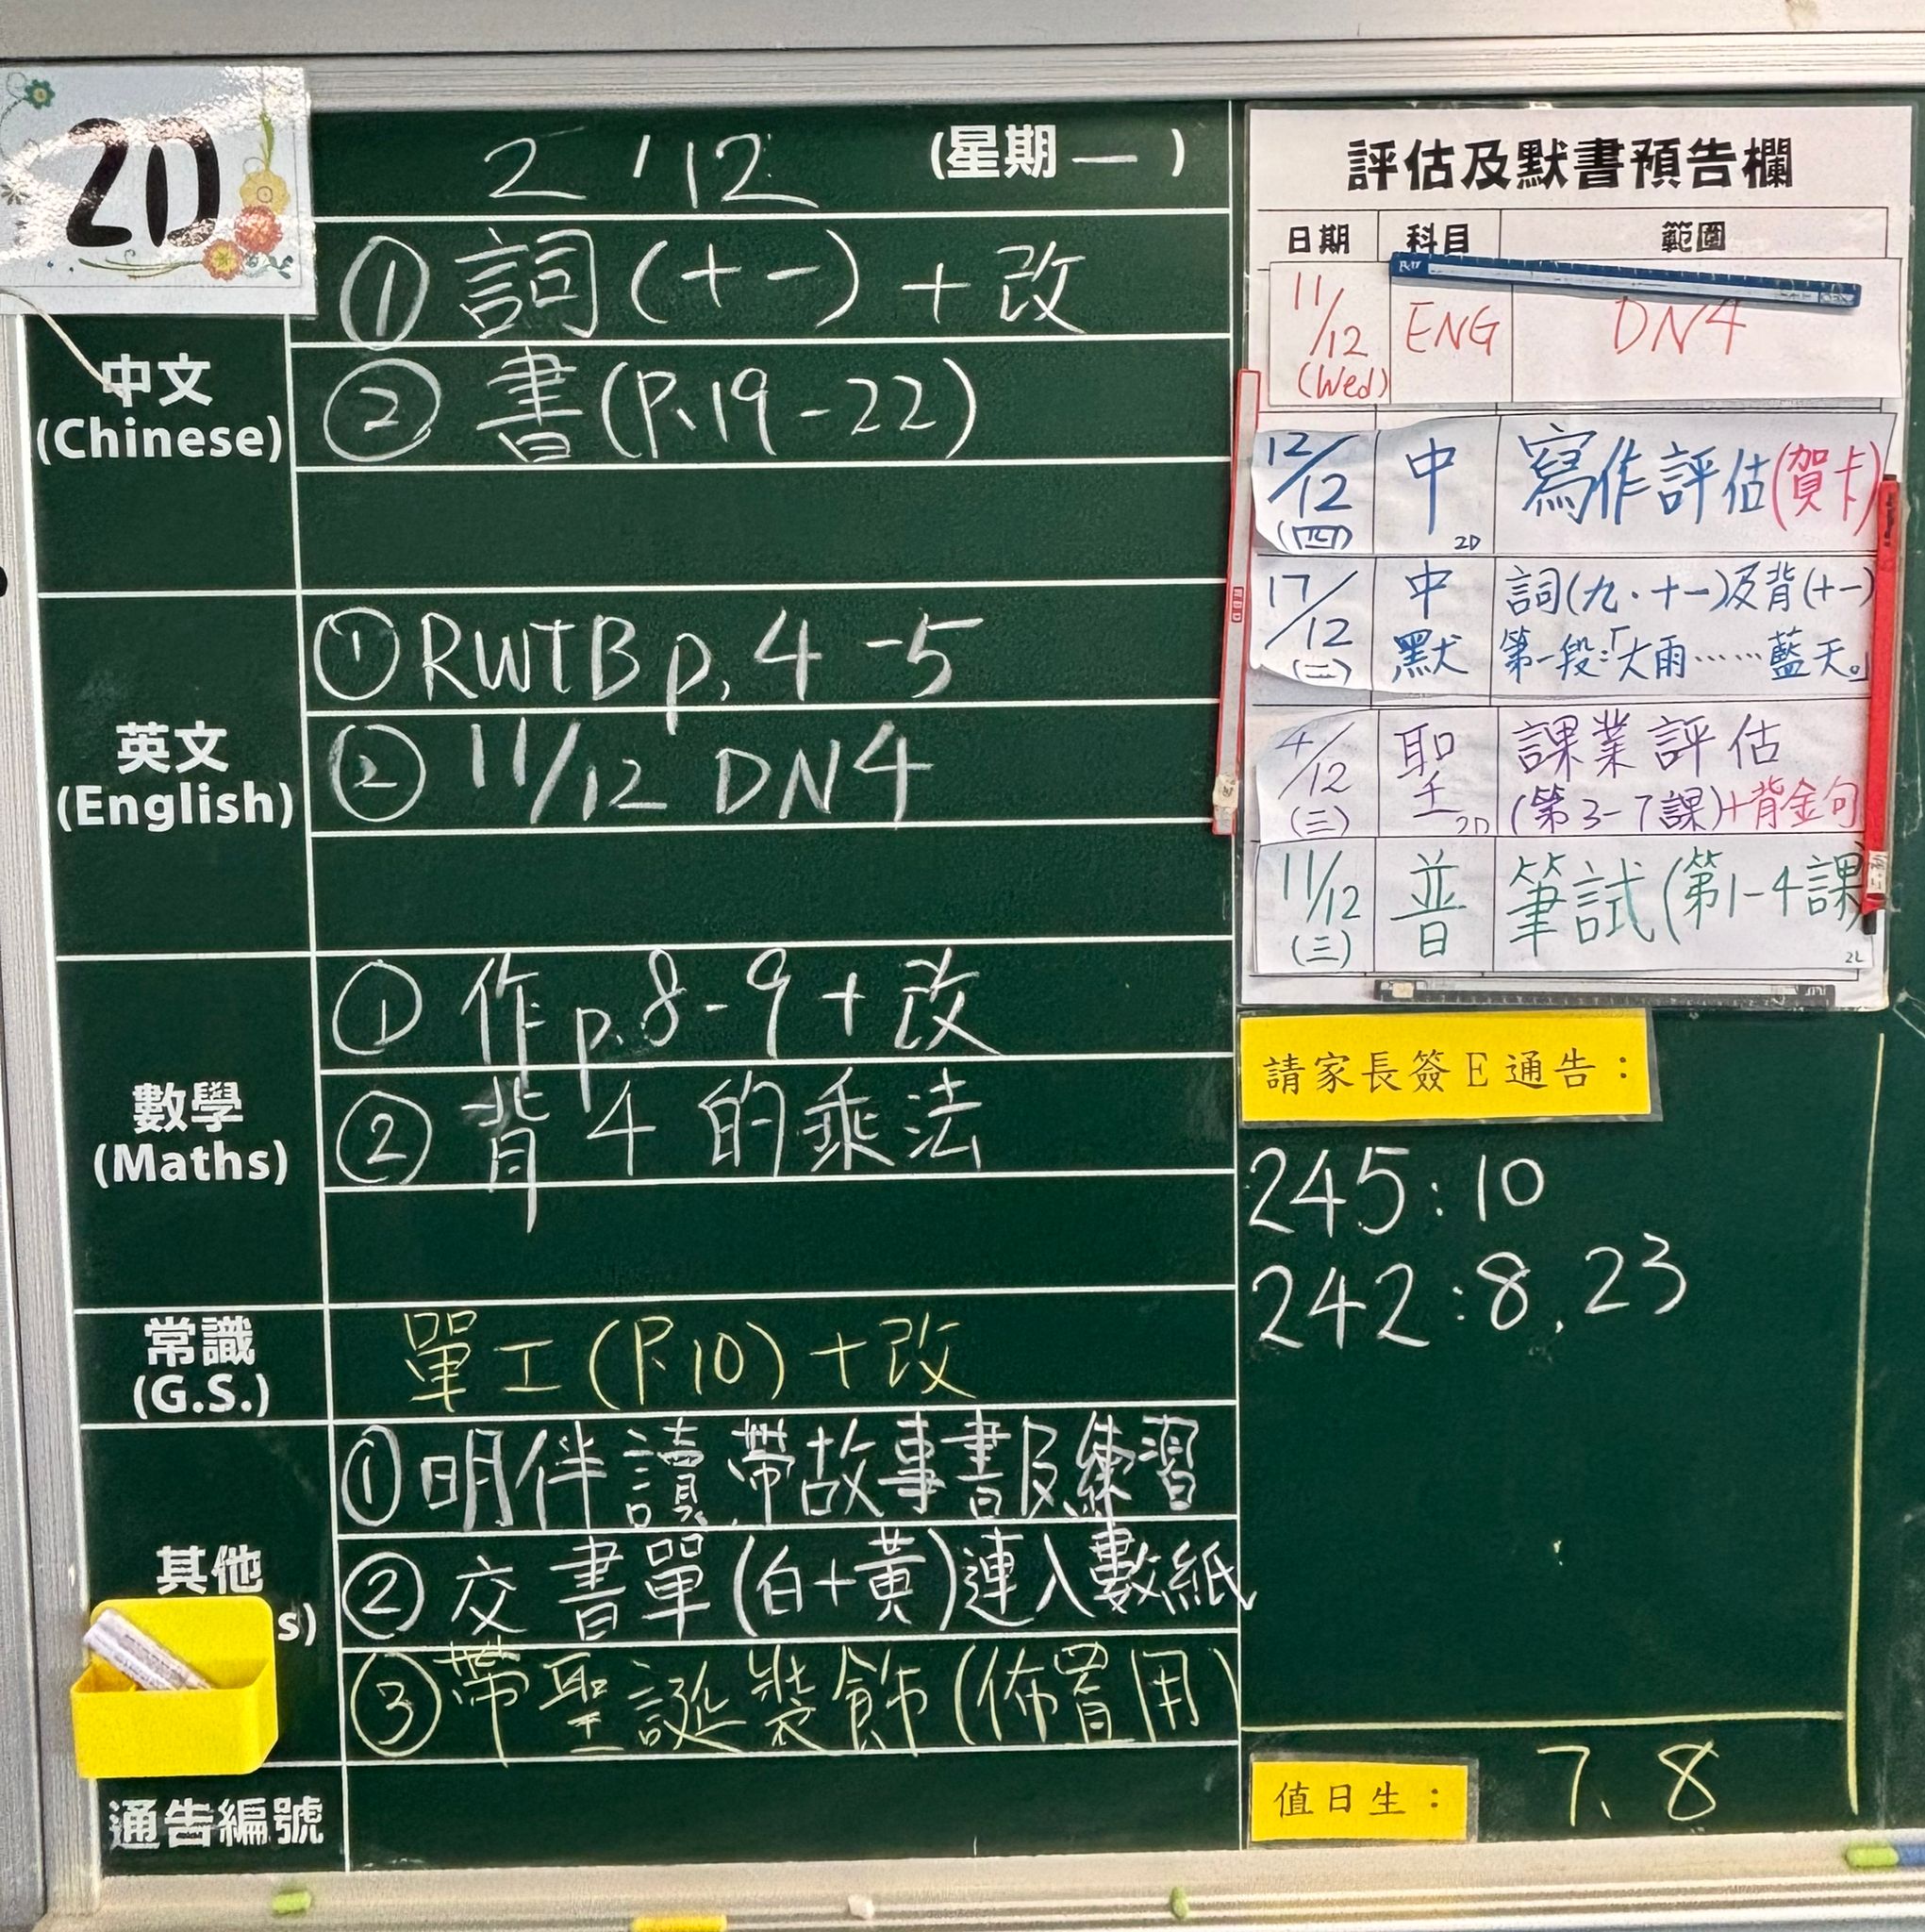 2D
2 / 12 (星期一)
中文
(Chinese)
① 詞(十一)+改
② 書(P.19-22)
英文
(English)
① RWTB p.4-5
② 11/12 DN4
數學
(Maths)
① 作p.8-9+改
② 背4的乘法
常識
(G.S.)
單工(P.10)+改
其他
s)
① 明伴讀,帶故事書及練習
② 交書單(白+黃)連入數紙
③ 帶聖誕裝飾(佈置用)
通告編號
評估及默書預告欄
日期 科目 範圍
11/12 (Wed) ENG DN4
12/12 (四) 中 2D 寫作評估(賀卡)
17/12 (二) 中默 詞(九、十一)及背(十一)
第一段:「大雨……藍天。」
4/12 (三) 聖 2D 課業評估
(第3-7課)+背金句
11/12 (三) 普 筆試(第1-4課)
請家長簽E通告:
245:10
242:8,23
值日生: 7、8